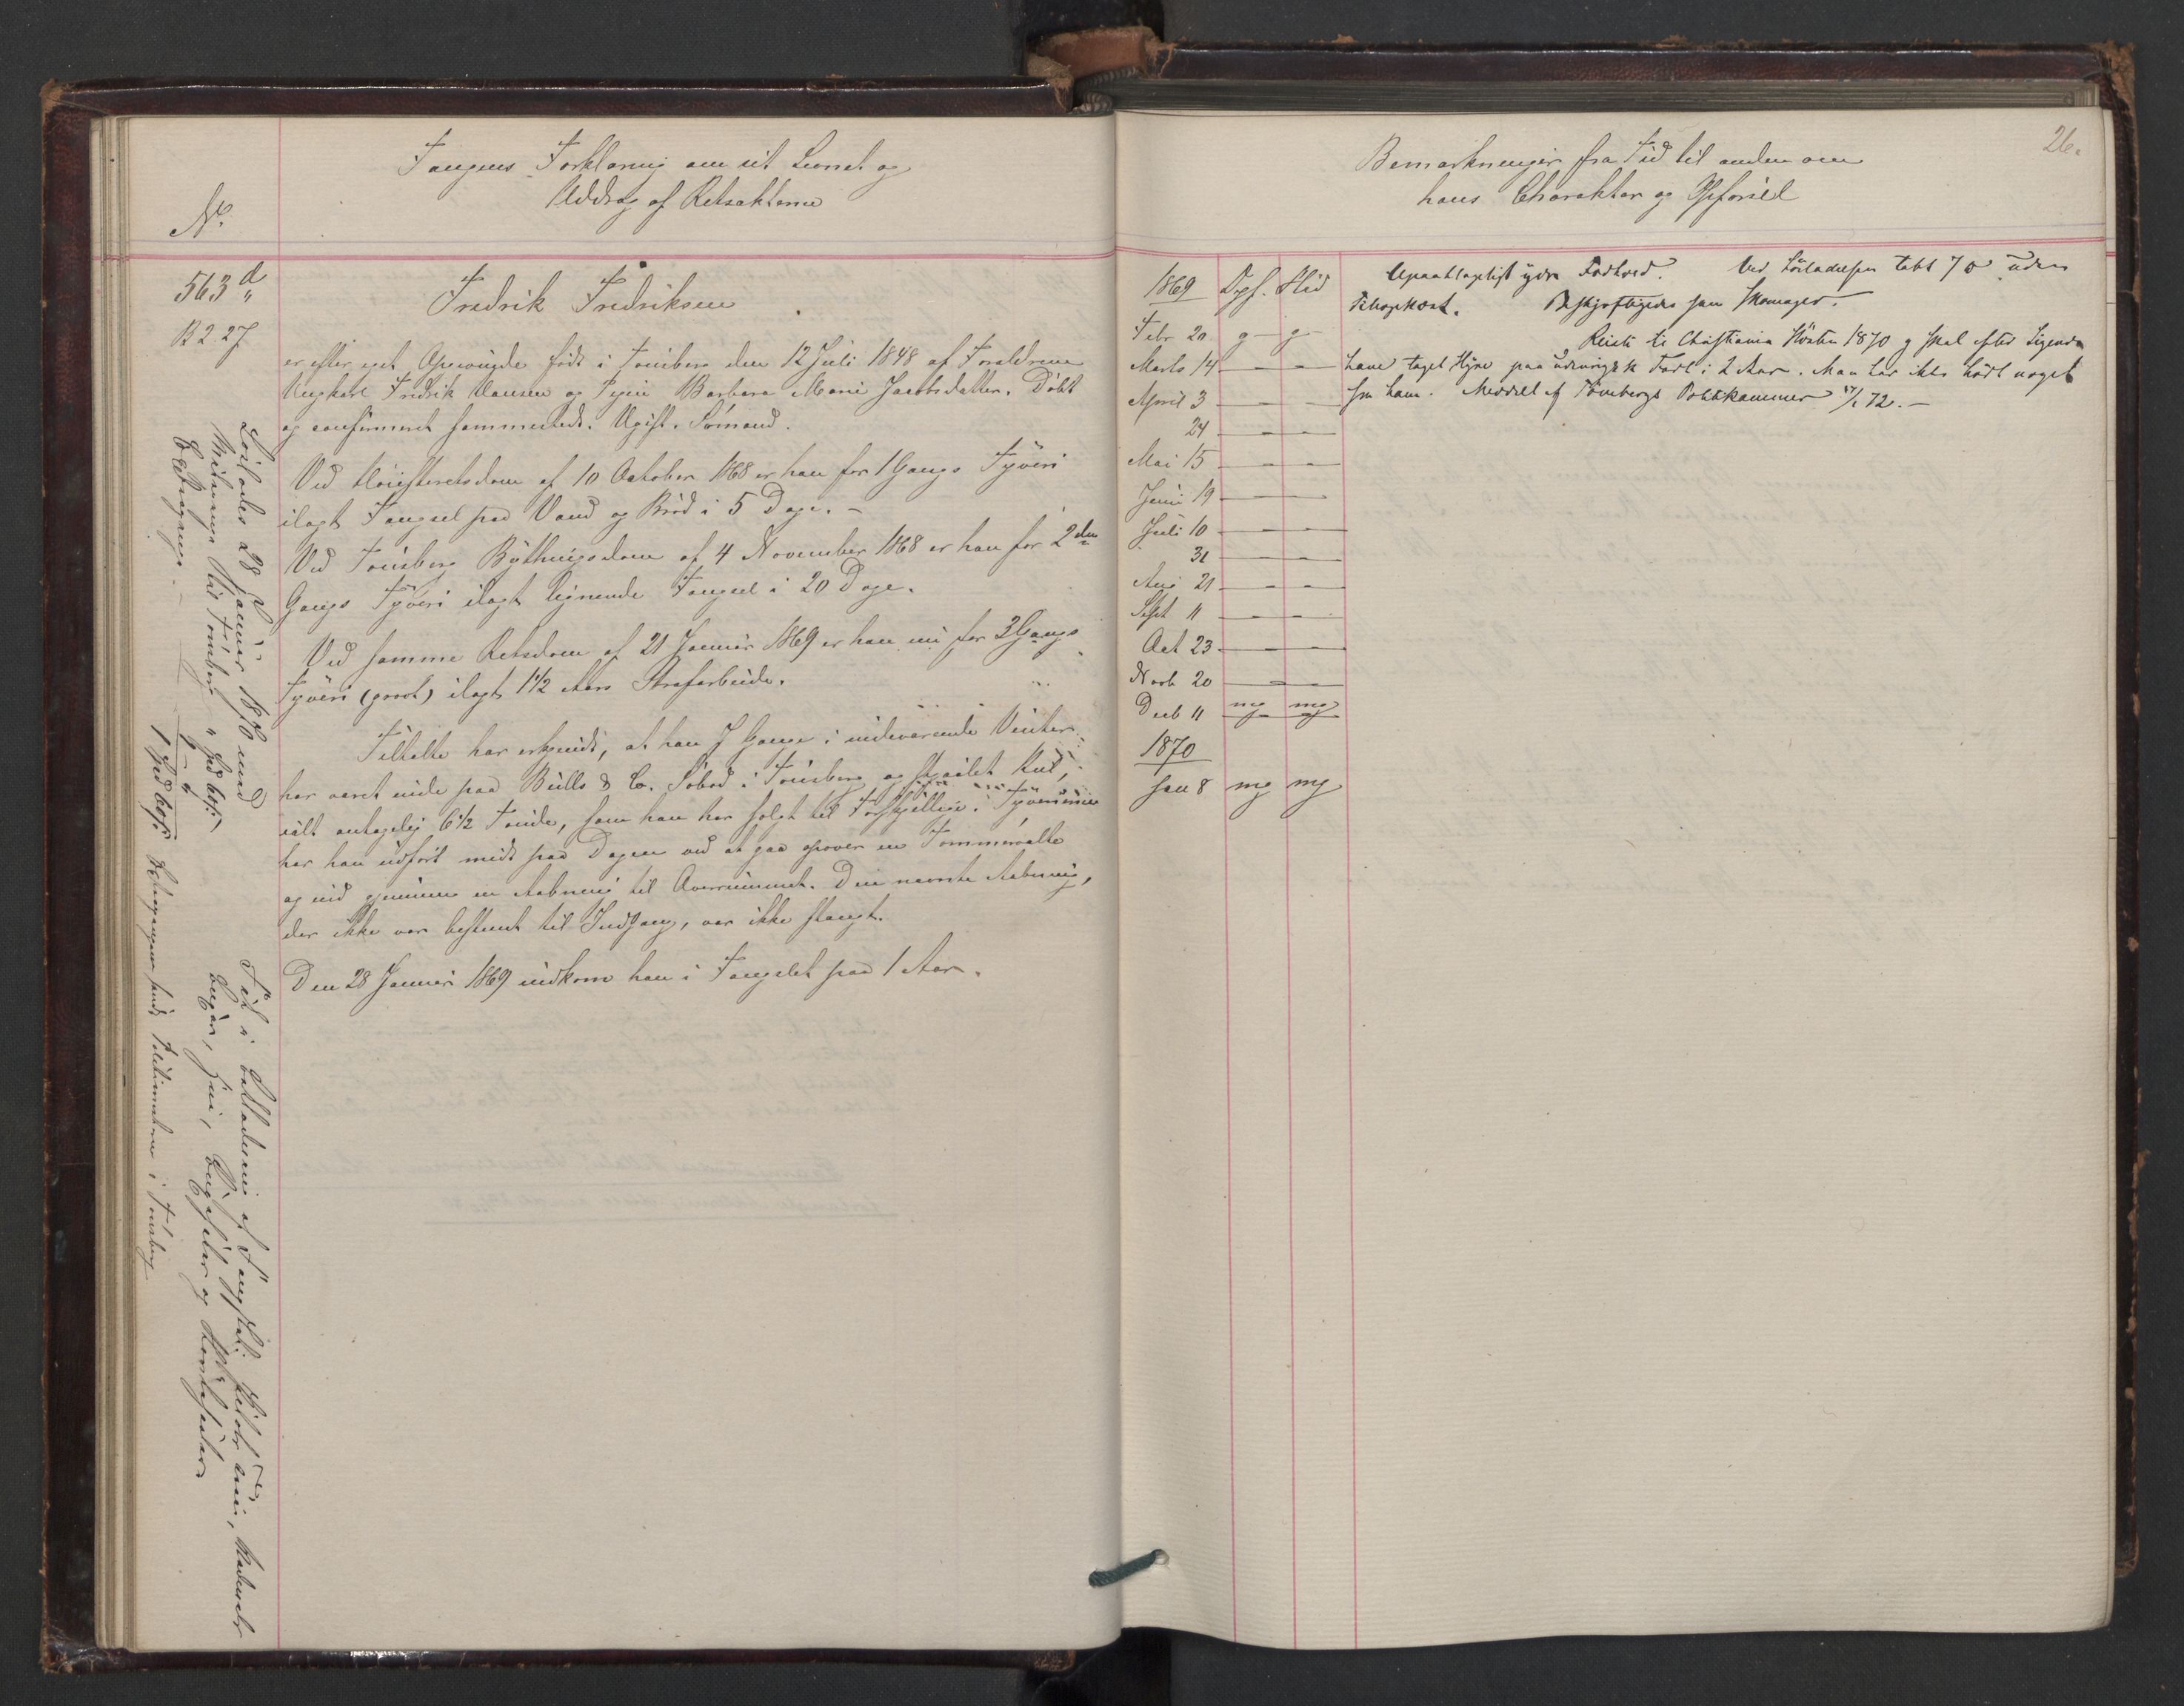 Fangens Forklaring om sit Levnet og
Uddrag af Retsakterne
No.
563 d
B 2 27
Fredrik Fredriksen
er efter eget Opgivende født i Tønsberg den 12 Juli 1848 af Forældrene
Ungkarl Fredrik Hansen og Pigen Barbara Marie Jacobsdatter. Døbt
og confirmeret sammesteds. Ugift. Sømand.
Ved Høiesteretsdom af 10 October 1868 er han for 1 Gangs Tyveri
ilagt Fængsel paa Vand og Brød i 5 Dage. –
Ved Tønsberg Bythingsdom af 4 November 1868 er han for 2den
Gangs Tyveri ilagt lignende Fængsel i 20 Dage.
Ved samme Retsdom af 21 Januar 1869 er han nu for 3 Gangs
Tyveri (grovt) ilagt 1 1/2 Aars Strafarbeide.
Tiltalte har erkjendt, at han 7 Gange i indeværende Vinter
har været inde paa Bulls & Co. Søbod i Tønsberg og stjaalet Rug,
ialt antagelig 6 1/2 Tønde, som han har solgt til Forskjellige. Tyverierne
har han udført midt paa Dagen ved at gaa opover en Tømmervalte
og ind gjennem en Aabning til Qvernrummet. Den nævnte Aabning,
der ikke var bestemt til Indgang, var ikke stængt.
Den 28 Januar 1869 indkom han i Fængslet paa 1 Aar.
Løslades 28 Januar 1870 med
Reisepenge til Tønsberg " Spd 60 s
Opsparepenge – – 1 – " –
1 Spd 60 s
Fik i Beklædning af Fængslet: Skjorte, Buxer,
Trøie,
26.
Bemærkninger fra Tid til anden om
hans Charakter og Opførsel
1869 Opf. Flid
Febr 20 g g
Marts 14 — —
April 3 — —
24 — —
Mai 15 — —
Juni 19 — —
Juli 10 — —
31 — —
Aug 21 — —
Sept 11 — —
Oct 23 — —
Novb 20 — —
Decb 11 mg mg
1870
Jan 8 mg mg
Upaaklageligt ydre Forhold. Ved Løsladelsen tabt 7 ℔ uden
Sibopkost. Beskjæftigedes som Skomager.
Reiste til Christiania Høsten 1870 og skal efter Sigende
have taget Hyre paa udenrigsk Fart i 2 Aar. Man har ikke hørt noget
fra ham. Meddelt af Tønsbergs Politikammer 27/1 72. –